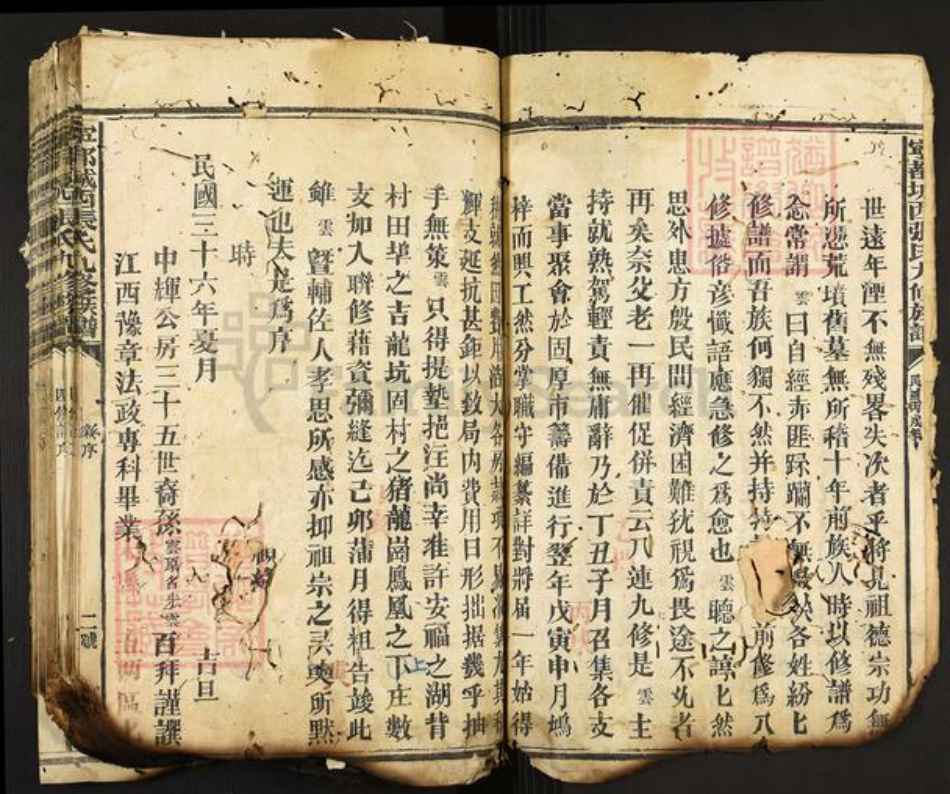 世遠年湮不無殘畧失次者乎將見祖德宗功無
所憑荒墳舊墓無所稽十年前族人時以修譜為
念常謂雲曰自經赤匪蹂躪不無缺各姓紛匕
修譜而吾族何獨不然并持 前修爲八
修據俗彦懺語應急修之爲愈也雲聽之諄匕然
思外患方殷民間經濟困難犹視爲畏途不免者
再矣奈父老一再催促併責云八連九修是雲主
持就熟駕輕責無庸辭乃於丁丑子月召集各支
當事聚會於固厚市籌備進行翌年戊寅申月鳩
梓而興工然分掌職守編纂詳對將届一年始得
輝支延抗甚鉅以致局内費用日形拙据幾乎抽
手無策雲只得提墊挹注尚幸准許安福之湖背
村田㘵之吉龍坑固村之猪龍崗鳳凰之下庄數
支加入聯修藉資彌縫迄己卯蒲月得粗告竣此
雖雲暨輔佐人孝思所感亦抑祖宗之灵爽所默
運也夫是爲序
時
民國三十六年憂月 吉旦
中輝公房三十五世裔孫 雲 百拜謹譔
江西豫章法政專科畢業
寕都城西張氏九修族譜
寕都城西張氏九修族譜
序
二號